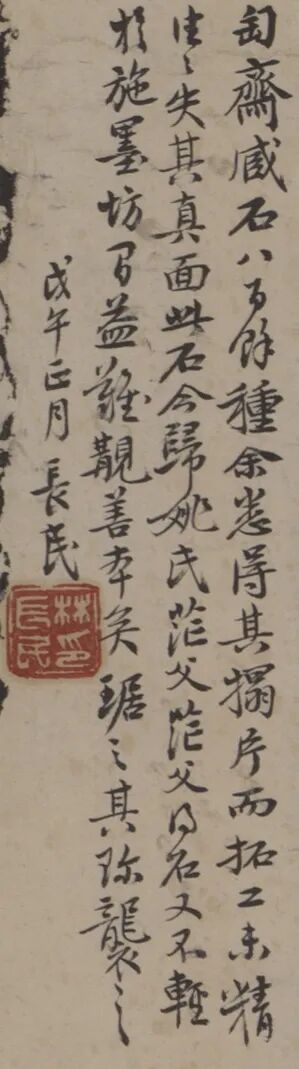 匋齋臧石八百餘種余悉得其搨片而拓工未精
往〻失其真面此石今歸姚氏茫父茫父得石又不輕
於施墨坊間益難覯善本矣琚之其珍襲之
戊午正月長民
林長民印